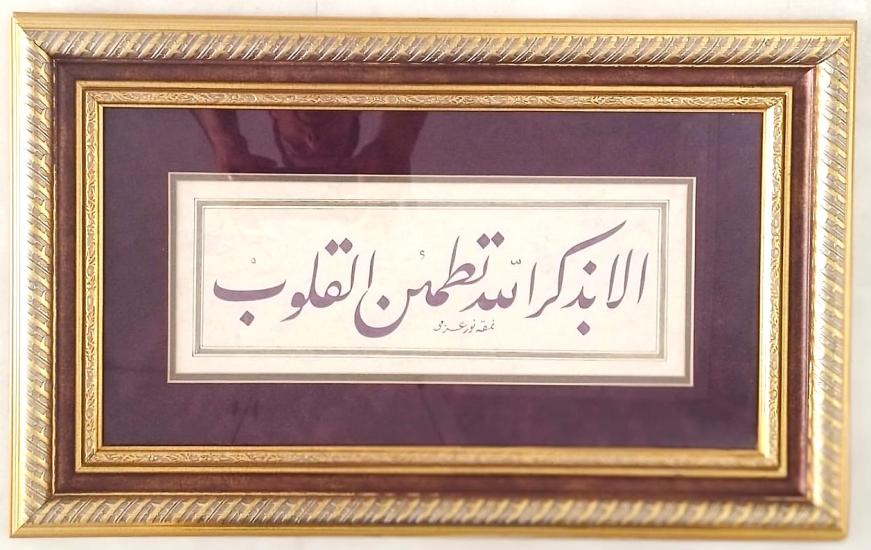 الا بذكر الله تطمئن القلوب
نمقه نور عزمي